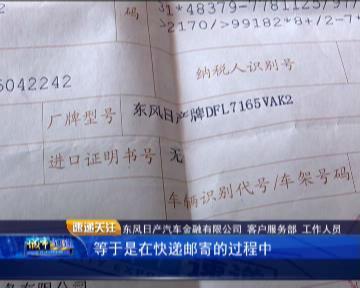 码
1*48379-7781125/97
>2170/>99182*8+/2-7
5042242
纳税人识别号
厂牌型号
东风日产牌DFL7165VAK2
进口证明书号
无
车辆识别代号/车架号码
速递关注
东风日产汽车金融有限公司 客户服务部 工作人员
等于是在快递邮寄的过程中